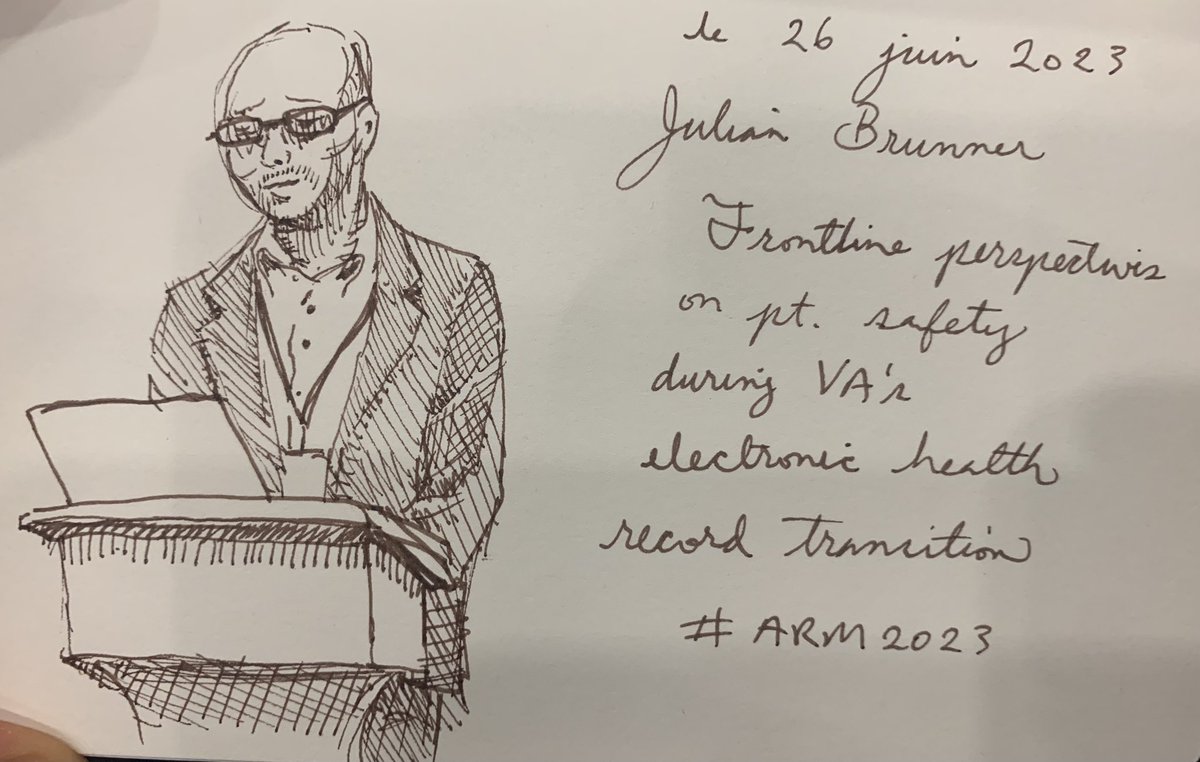 le 26 juin 2023
Julian Brunner
Frontline perspectives
on pt. safety
during VA's
electronic health
record transition
#ARM2023